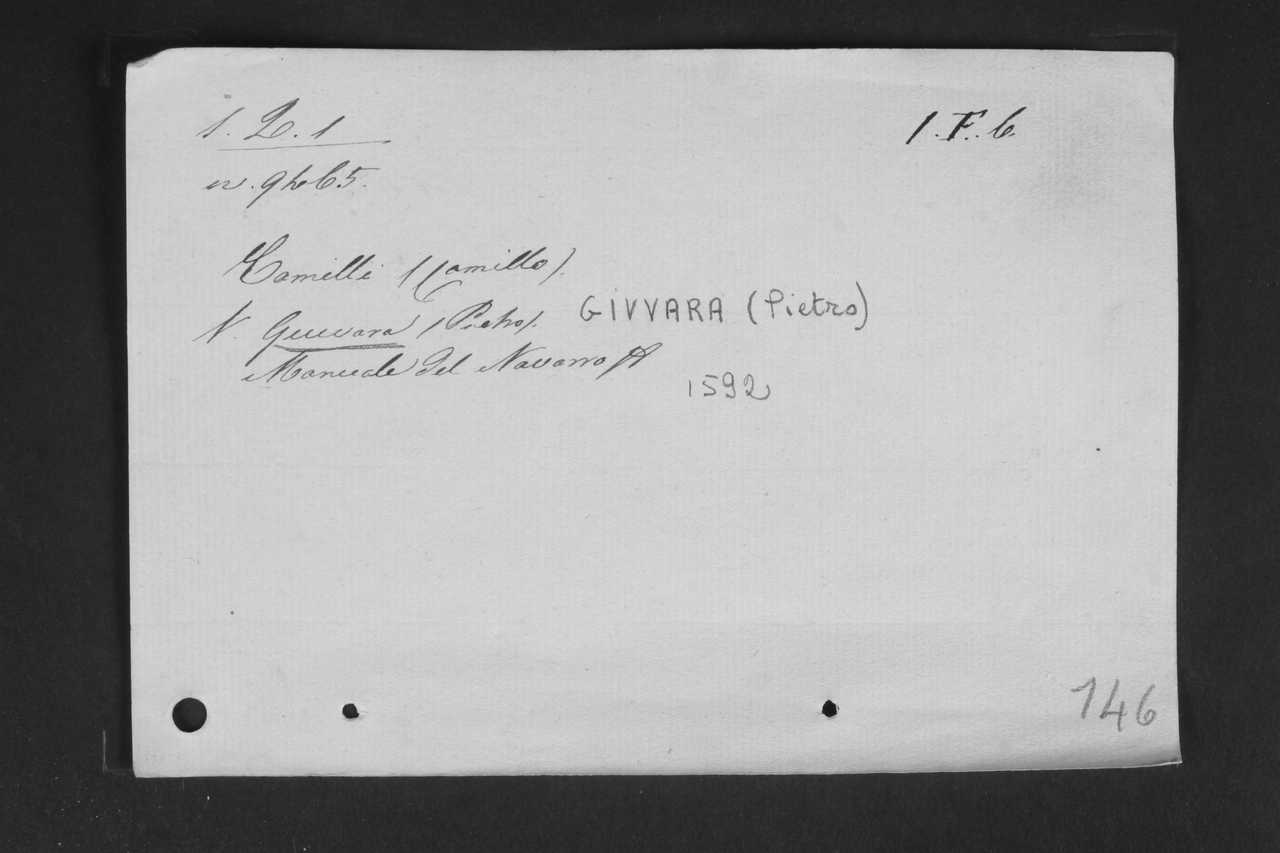 1. D. 1
1. F. 6.
n. 9465.
Camilli (Camillo).
V. Guevara (Pietro).
GIVVARA (Pietro)
Manuale del Navarro
1592
146